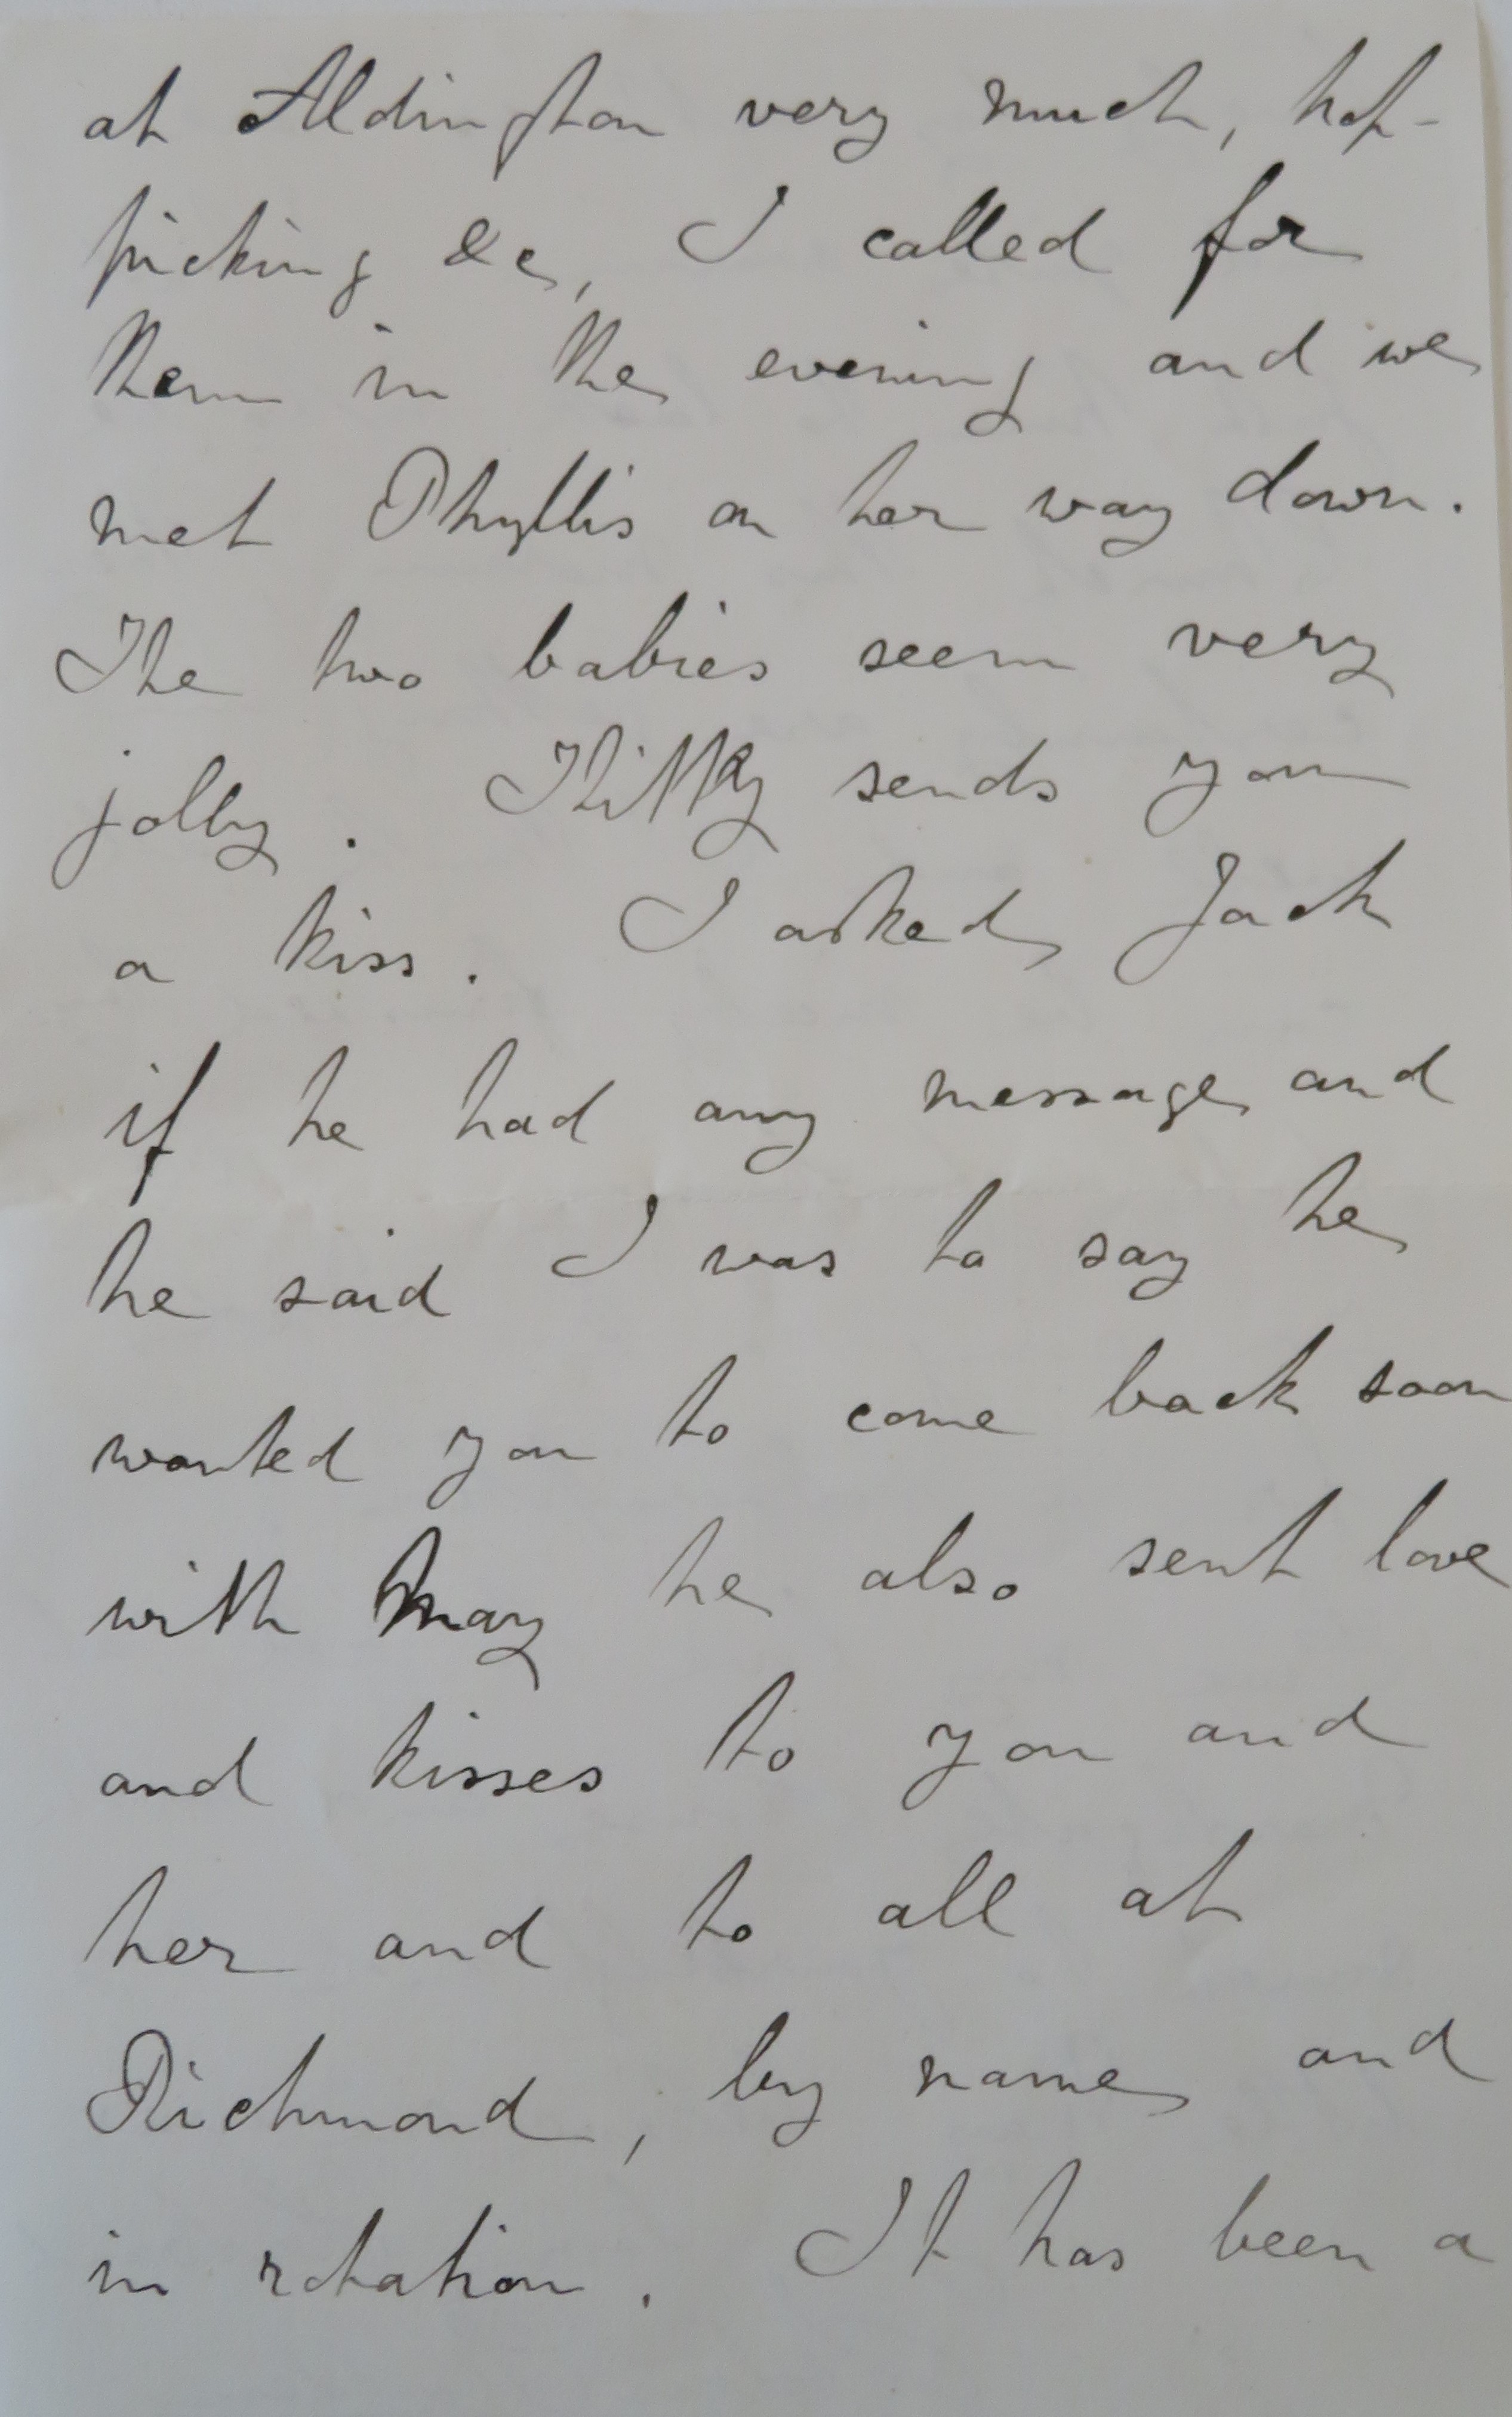 at Aldington very much, hop-
picking &c, I called for
them in the evening and we
met Phyllis on her way down.
The two babies seem very
jolly. Kitty sends you
a kiss. I asked Jack
if he had any message and
he said I was to say he
wanted you to come back soon
with May he also sent love
and kisses to you and
her and to all at
Richmond, by name and
in rotation. It has been a